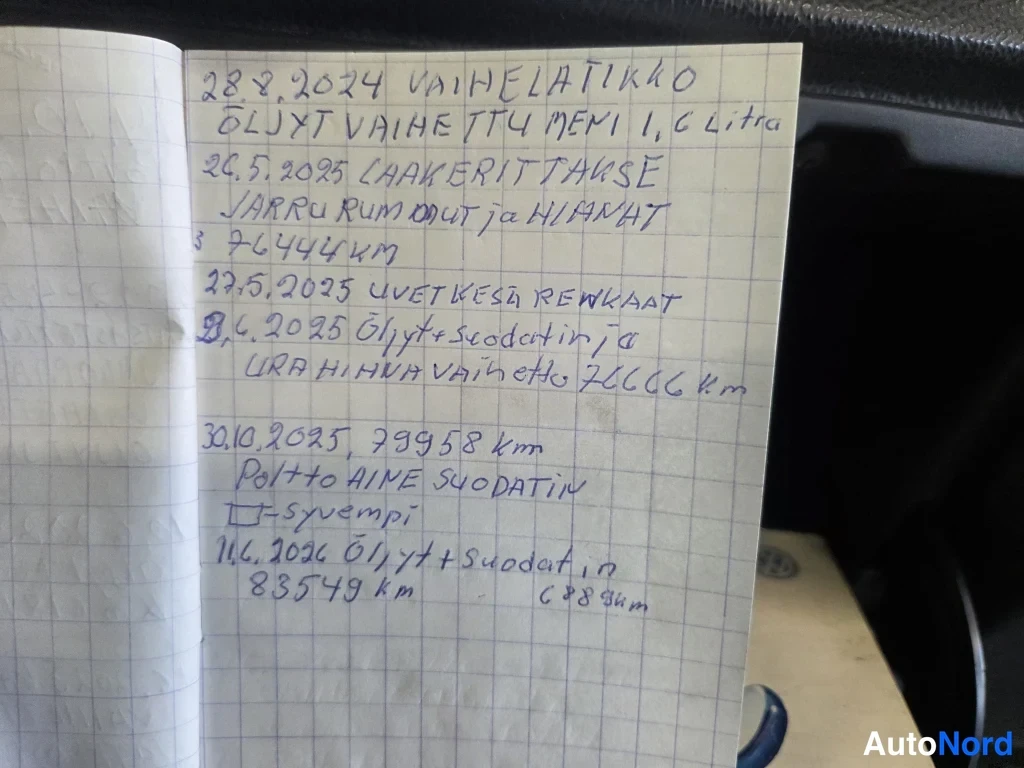 28.8.2024 VAIHELATIKKO
ÖLJYT VAIHETTU MENI 1,6 Litra
26.5.2025 LAAKERIT TAKSE
JARRU RUMMUT ja HIANAT
76444 KM
27.5.2025 UUET KESÄ RENKAAT
.6.2025 Öljyt + Suodatin ja
URA HIHNA Vaihetto 76666 Km
30.10.2025, 79958 Km
PolttoAINE SUODATIN
-Syvempi
11.6.2026 Öljyt + Suodatin
83549 Km 6889km
AutoNord